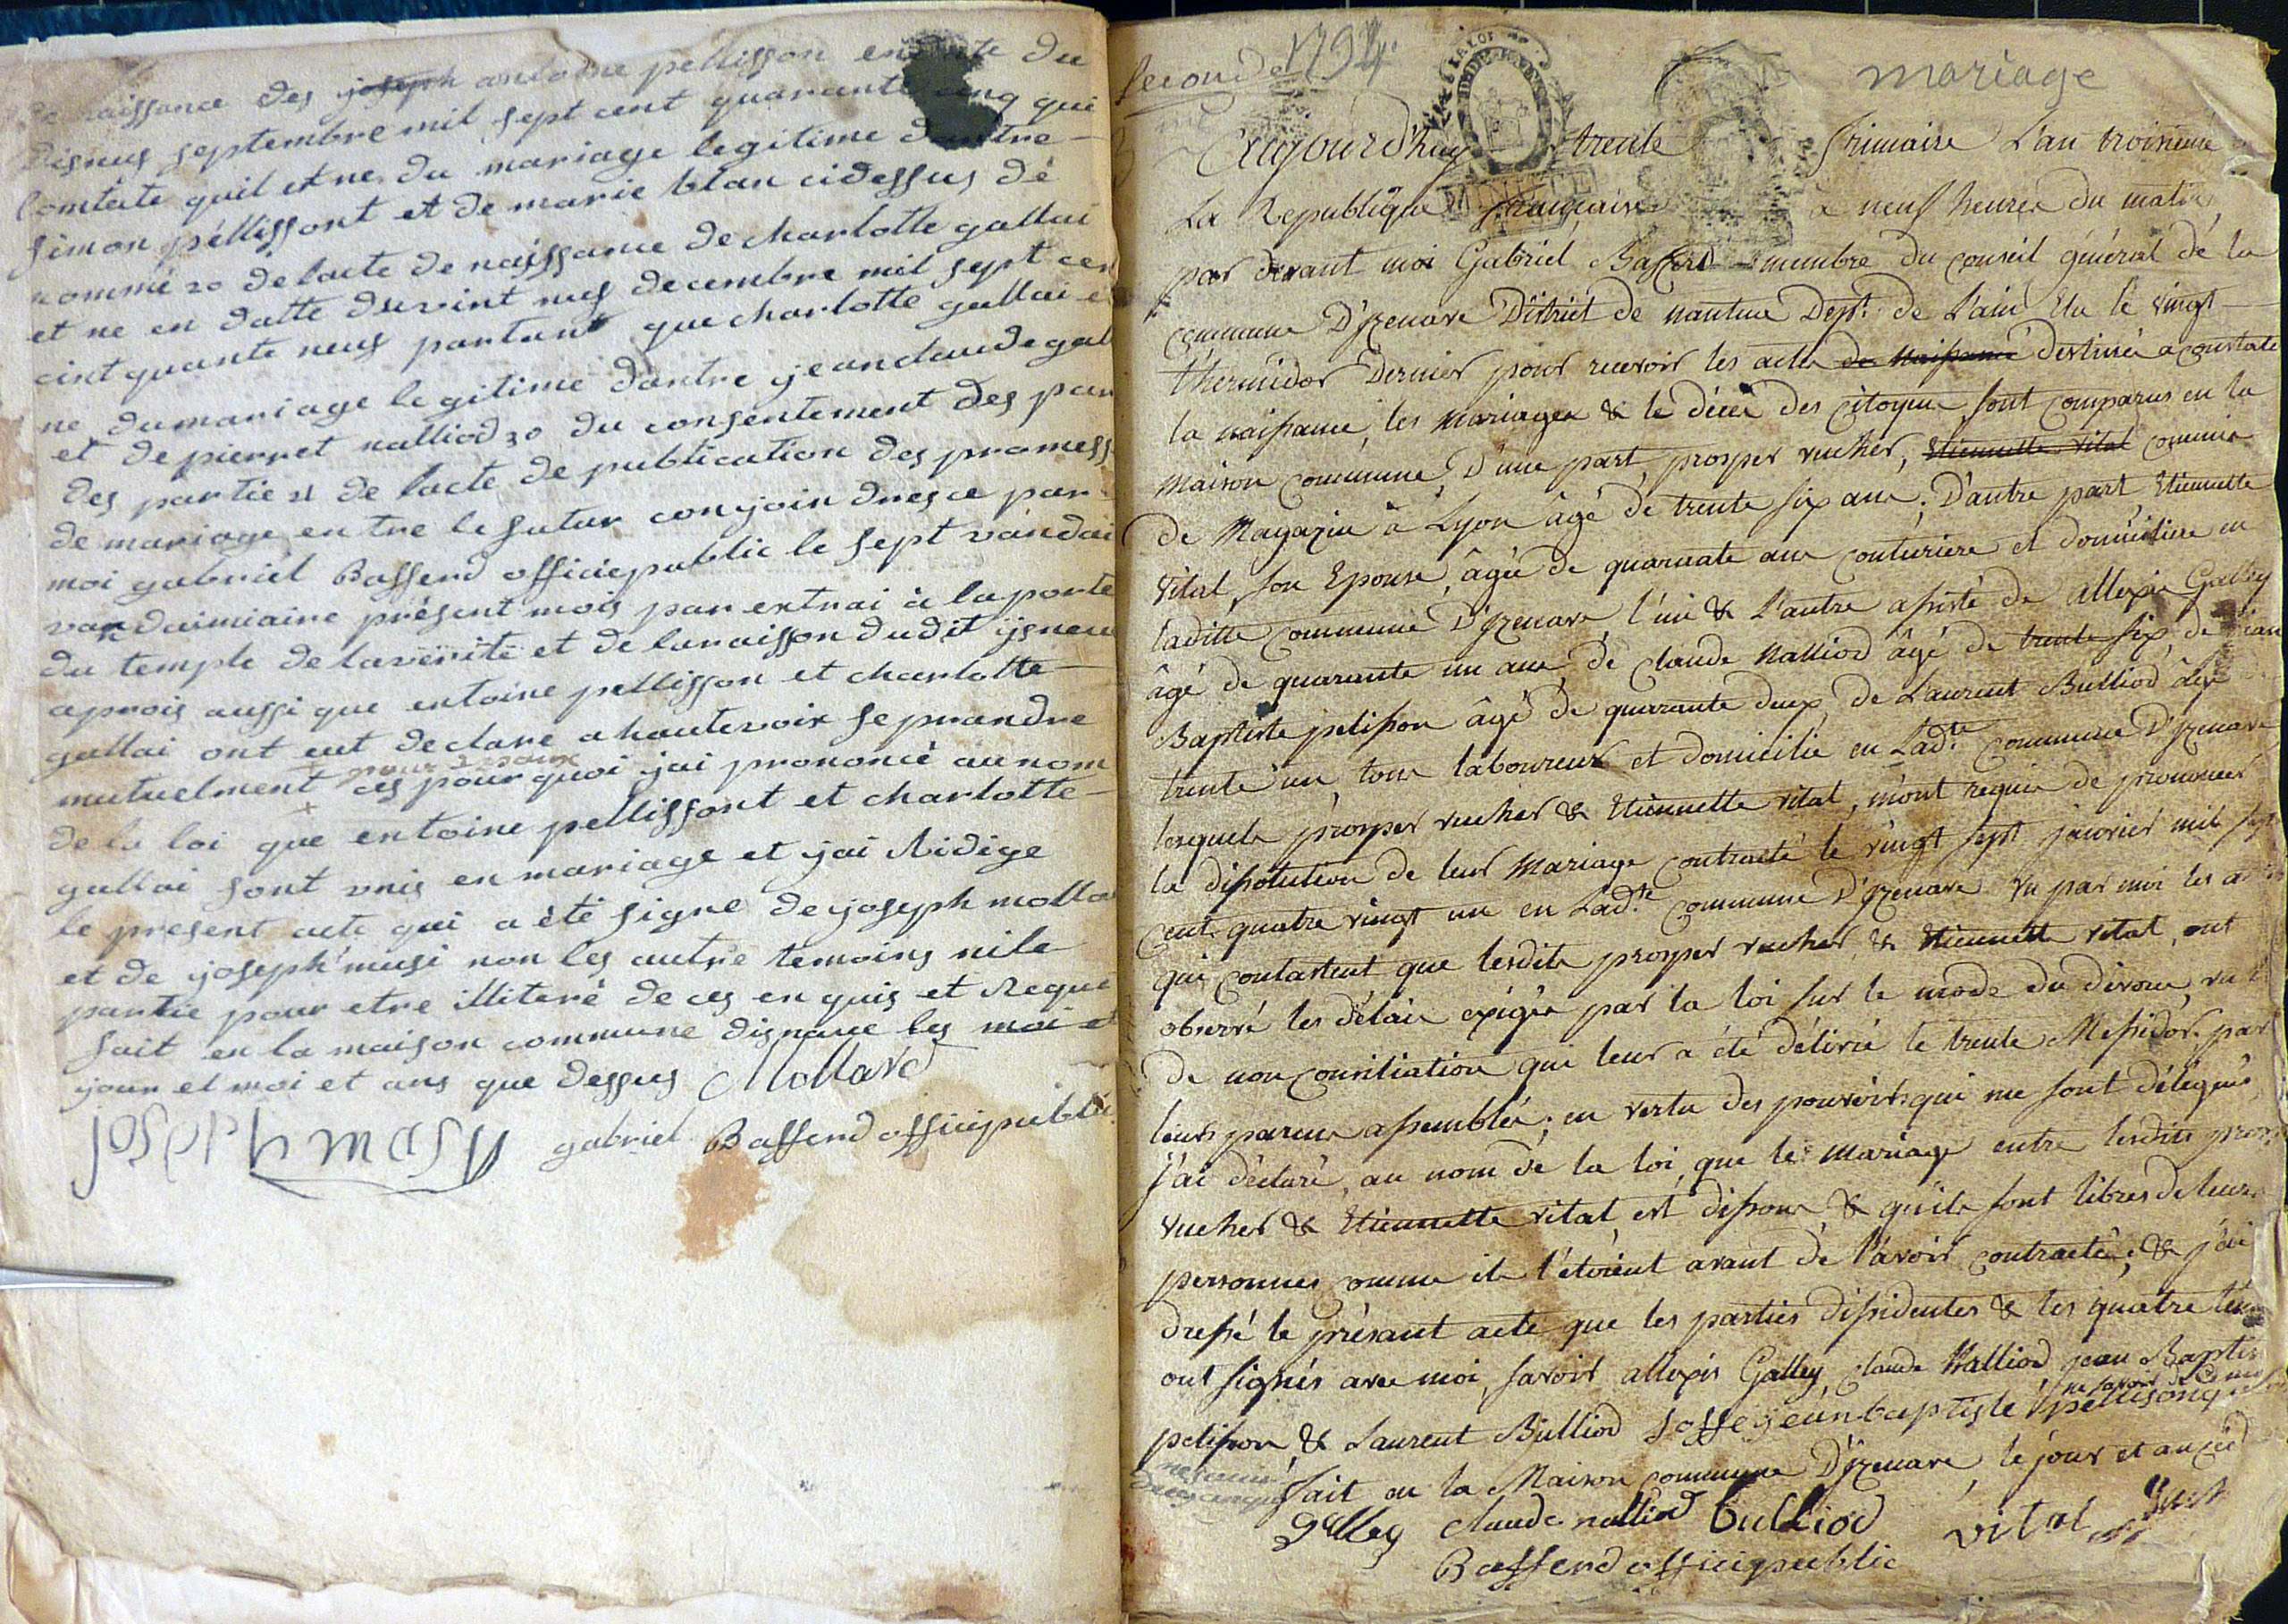 de naissance des joseph antoine pellisson en date du
disneuf septembre mil sept cent quarante cinq qui
contate quil et ne du mariage legitime dantre
simon péllissont et de marie blan cidessus dé
nommé 20 de lacte de naissance de charlotte gallai
et ne en datte du vint neuf decembre mil sept cen
cint quante neuf partant que charlotte gallai e
ne du mariage legitime dantre jean claude gal
et de pierret nalliod 30 du consentement des par
des partie 21 de lacte de publication des promess
de mariage en tre le futur conjoin dresce par
moi gabriel Bassend officiepublic le sept vandai
vandaimiaire présent mois par extrai à la porte
du temple de lavérité et de laraisson dudit ysneu
aprois aussi que entoine pellisson et charlotte
gallai ont eut declare a hautevoix seprandre
mutuelment pour epoux ces pour quoi jai prononcé au nom
de la loi que entoine pellissont et charlotte
gallai sont unis en mariage et jai Ridige
le present acte qui a été signe de joseph molla
et de joseph musi non les autre temoins nile
partie pour etre illiteré de ces en quis et Requi
fait en la maison commune disnave les moi et
jour et moi et ans que dessus Mollard
gabriel Bassend officiepublic
seconde 1794
mariage
Cejourd'huy trente frimaire L'an troisieme
La Republique française à neuf heures du matin
par devant moi Gabriel Bassend membre du conseil général dé la
commune D'Izenave District de nantua Dept. de L'ain Elu le vingt
thermidor Dernier pour recevoir les actes de Naissance destinés a constate
la naissance, les mariages & le décès des citoyens sont comparus en la
maison commune, D'une part, prosper vucher, Etiennette vital commis
de Magazin à Lyon âgé de trente six ans; D'autre part, Etiennette
Vital, son Epouse, âgée de quarante ans couturiere et domiciliere en
laditte commune D'Izenave l'un & L'autre assisté de allexis Galley
âgé de quarante un ans, de claude Nalliod âgé de trente six, de jean
Baptiste pelisson âgé de quarante deux, de Laurent Bulliod âgé
trente un, tous laboureurs et domicilie en Lad.te commune D'Izenave
lesquels prosper vucher & Etiennette vital, m'ont requis de prononcer
la dissolution de leur mariage contracté le vingt sept janvier mil sept
cent quatre vingt un en Lad.te commune D'Izenave vu par moi les actes
qui contastent que lesdits prosper vucher & Etiennette vital, ont
observé les délais exigés par la loi sur le mode du divorce, vu l'
de non conciliation qui leur a été délivré le trente Messidor par
leurs parens assemblés; en vertu des pouvoirs qui me sont délégués
j'ai déclaré, au nom de la loi, que le mariage entre lesdits prosp
vucher & Etiennette vital est dissous & qu'ils sont libres de leurs
personnes comme ils l'étoient avant de l'avoir contracté; & j'ai
dressé le présant acte que les parties dissidentes & les quatre tem
ont signés avec moi, savoir allexis Galley, claude Nalliod jean Baptis
pelisson & Laurent Bulliod jean baptiste pellison
fait en la Maison commune D'Izenave, le jour et an
Galley claude nalliod bulliod vital
Bassend officiepublic